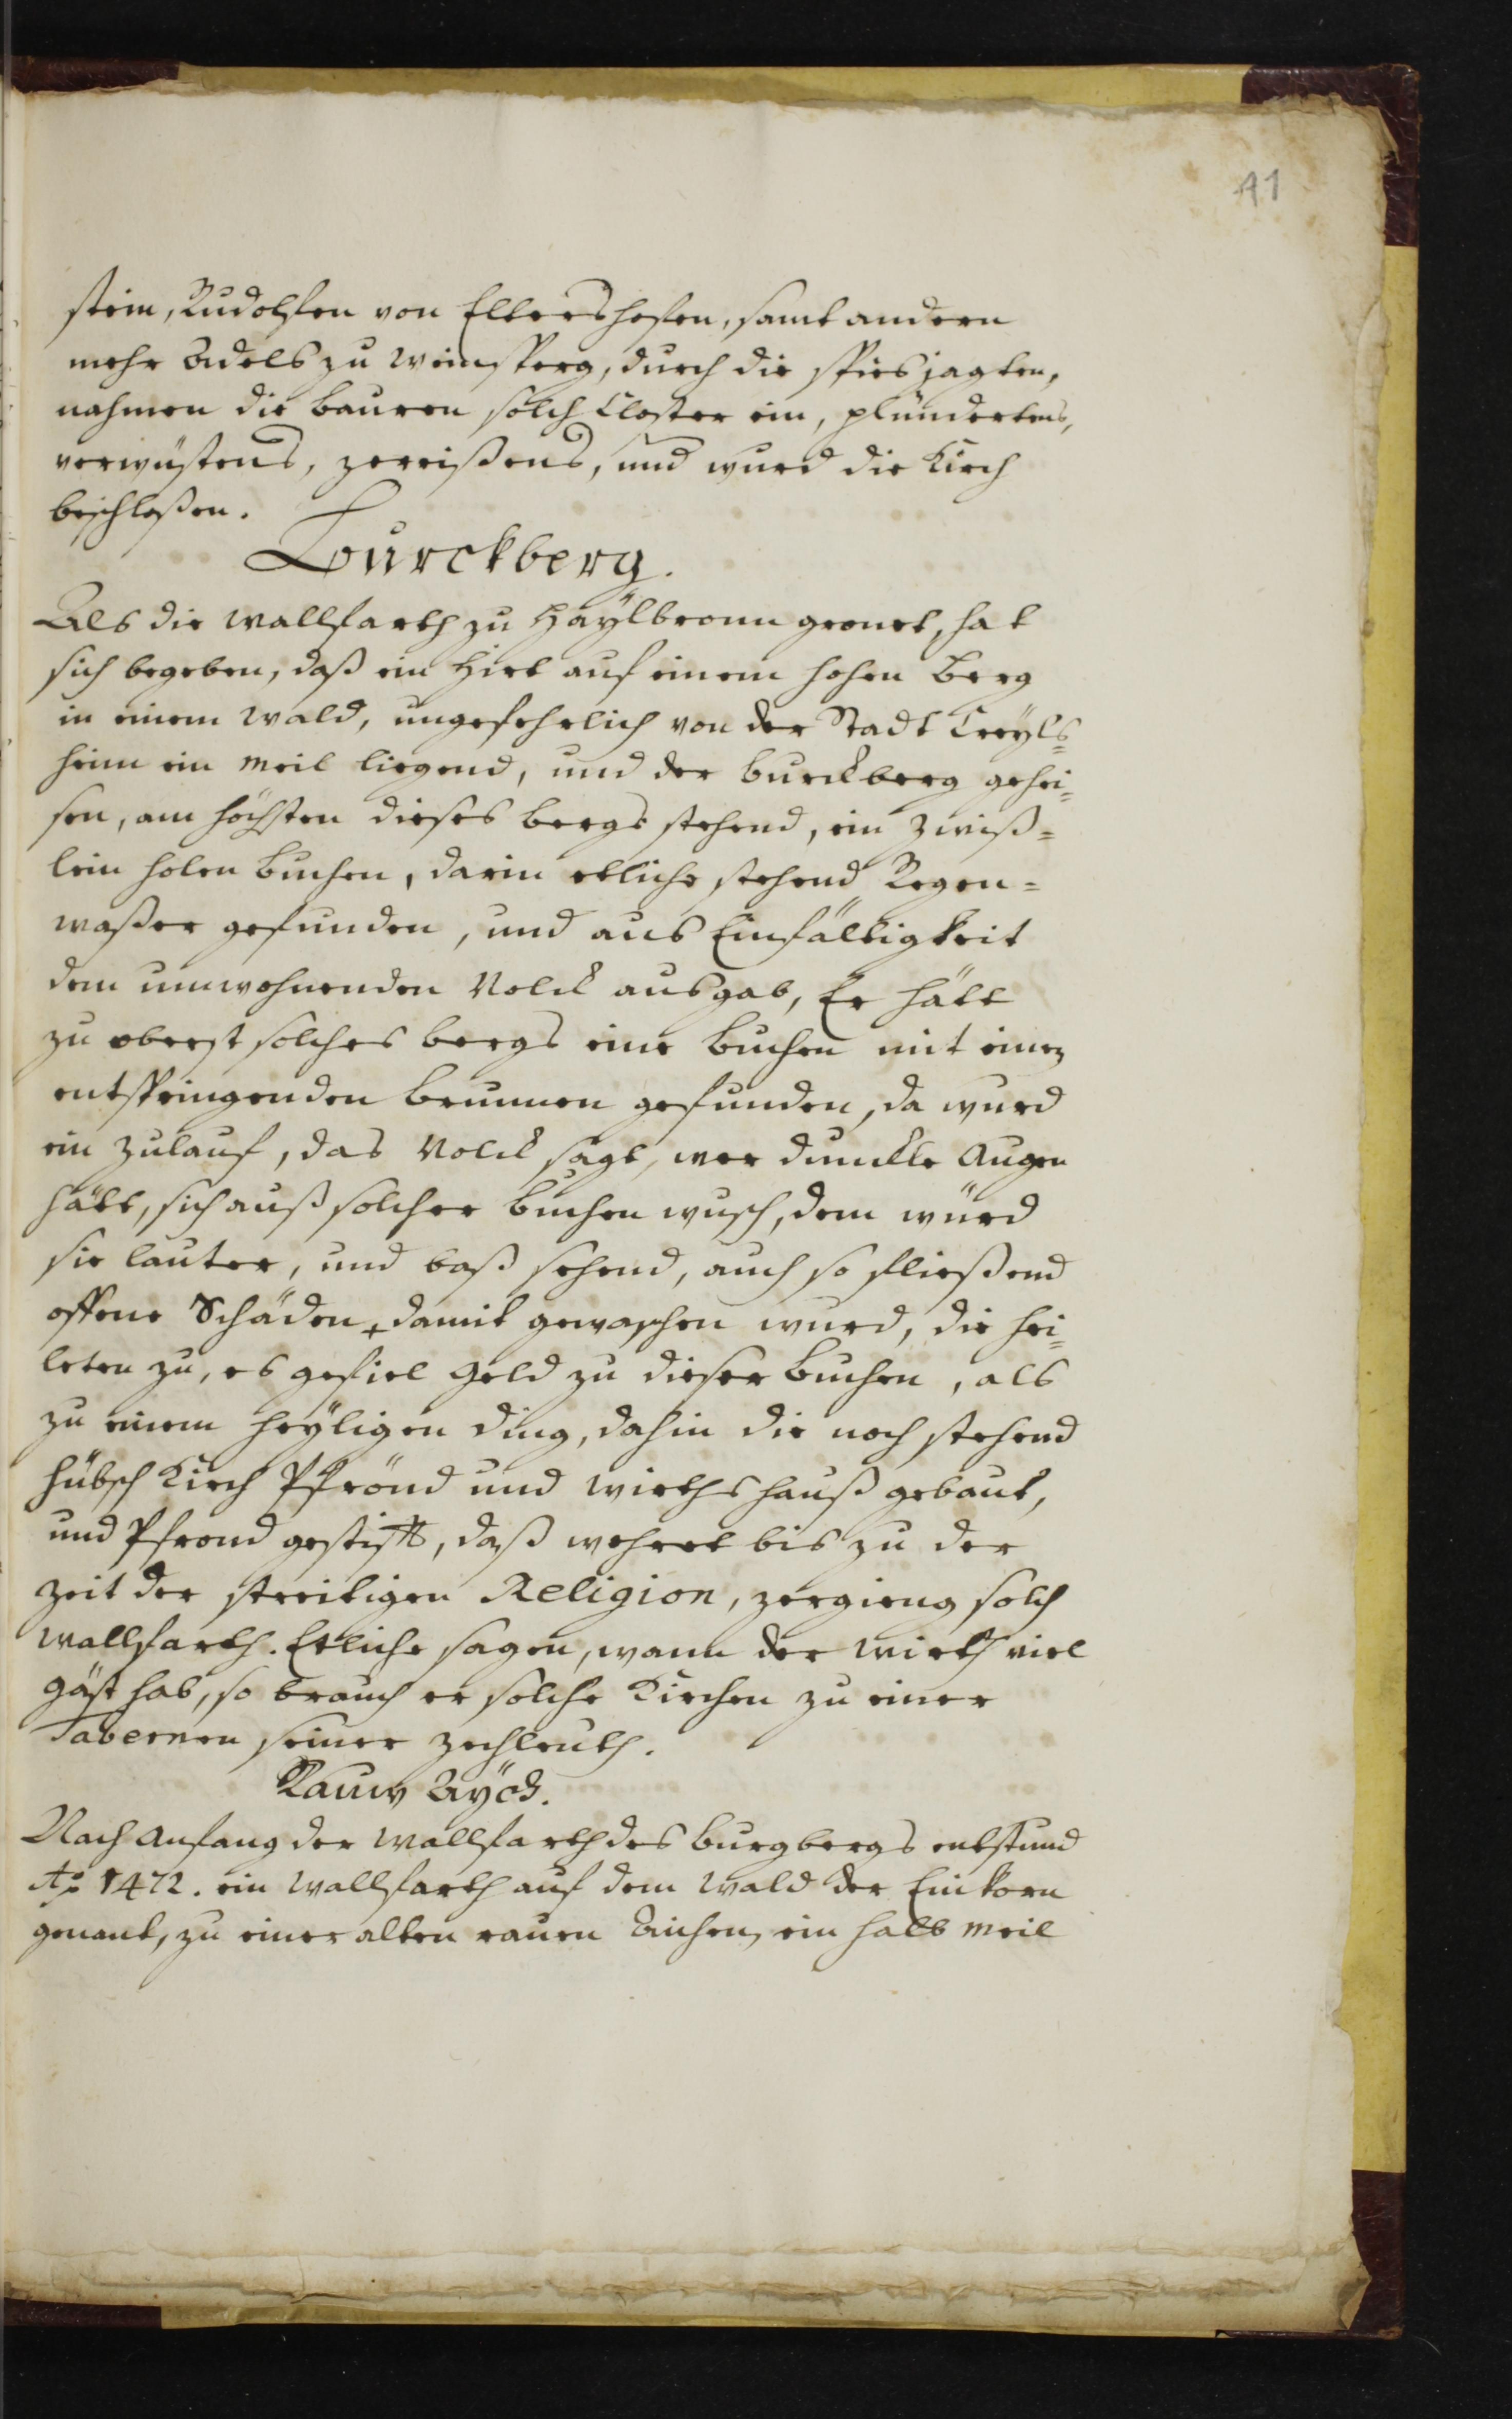 41
stein, Rudolfen von Elterßhofen, samt andern
mehr Adels zu Weinsperg, durch die spies jagten,
nahmen die Bauren solch Closter ein, plündertens,
verwüstens, zereißens, und wurd die Kirch
beschloßen.
Burckberg.
Als die Wallfarth zu Haÿlbronn gronet, hat
sich begeben, daß ein Hirt auf einem hohen Berg
in einem Wald, ungefehrlich von der Stadt Creÿls=
heim ein Meil liegend, und der Burckberg gehei=
sen, am höchsten dieses bergs stehend, ein Zwiß=
lein holen Buchen, darin etliche stehend Regen=
waßer gefunden, und aus Einfältigkeit
dem umwohnenden Volck ausgab, Er hätt
zu oberst solches bergs eine Buchen mit einem
entspringenden Brunnen gefunden, da wurd
ein Zulauf, das Volck sagt, wer dunckle Augen
hätt, sich auß solcher Buchen wusch, dem würd
sie lauter, und baß sehend, auch so fließend
offene Schäden + damit gewaschen wurd, die hei=
leten zu, es gefiel Geld zu dieser Buchen, als
zu einem heÿligen ding, dahin die noch stehend
hübsch Kirch Pfrönd und Wirthshauß gebaut,
und Pfrond gestifft, daß wehret bis zu der
Zeit der streitigen Religion, zergieng solch
Wallfarth. Etliche sagen, wann der Wirth viel
Gäst hab, so brauch er solche Kirchen zu einer
Tabernen seiner Zechleuth.
Rauw Aÿch.
Nach Anfang der Wallfarth des Burgbergs entstund
Aō 1472. ein Wallfarth auf dem Wald der Einkorn
genant, zu einer alten rauen Aichen, ein halb Meil